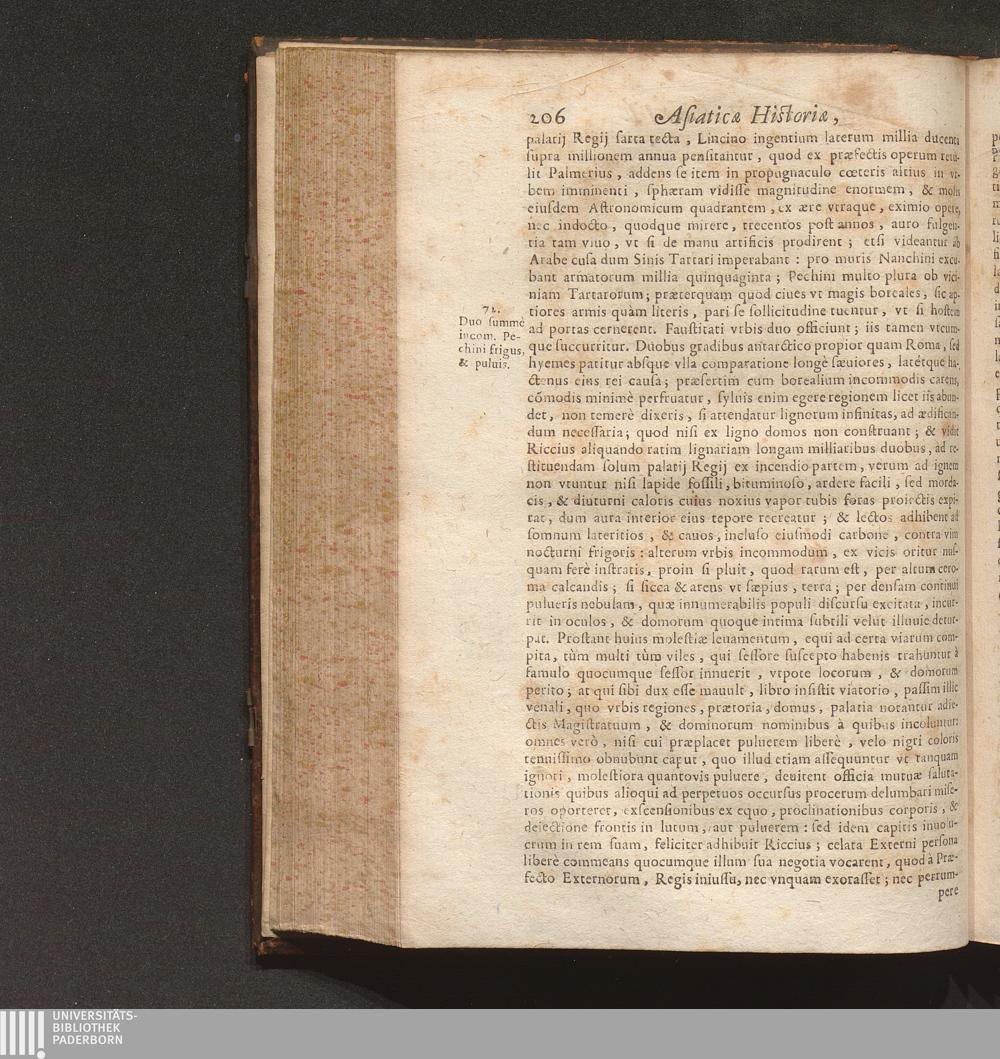 206 Aſiaticæ Hiſtoriæ,
palatij Regij ſarta tecta, Lincino ingentium laterum millia ducenta
ſupra millionem annua penſitantur, quod ex præfectis operum retu-
lit Palmerius, addens ſe item in propugnaculo cœteris altius in vr-
bem imminenti, ſphæram vidiſſe magnitudine enormem, & molis
eiuſdem Aſtronomicum quadrantem, ex ære vtraque, eximio opere,
nec indocto, quodque mirere, trecentos poſt annos, auro fulgen-
tia tam viuo, vt ſi de manu artificis prodirent; etſi videantur ab
Arabe cuſa dum Sinis Tartari imperabant: pro muris Nanchini excu-
bant armatorum millia quinquaginta; Pechini multo plura ob vici-
niam Tartarorum; præterquam quod ciues vt magis boreales, ſic ap-
tiores armis quàm literis, pari ſe ſollicitudine tuentur, vt ſi hoſtem
ad portas cernerent. Fauſtitati vrbis duo officiunt; iis tamen vtcum-
que ſuccurritur. Duobus gradibus antarctico propior quam Roma, ſed
hyemes patitur abſque vlla comparatione longè ſæuiores, latétque ha-
ctenus eius rei cauſa; præſertim cum borealium incommodis carens,
cómodis minimè perfruatur, ſyluis enim egere regionem licet iis abun-
det, non temerè dixeris, ſi attendatur lignorum infinitas, ad ædifican-
dum neceſſaria; quod niſi ex ligno domos non conſtruant; & vidit
Riccius aliquando ratim lignariam longam milliaribus duobus, ad re-
ſtituendam ſolum palatij Regij ex incendio partem, verum ad ignem
non vtuntur niſi lapide foſſili, bituminoſo, ardere facili, ſed morda-
cis, & diuturni caloris cuius noxius vapor tubis foras proiectis expi-
rat, dum aura interior eius tepore recreatur; & lectos adhibent ad
ſomnum lateritios, & cauos, incluſo eiuſmodi carbone, contra vim
nocturni frigoris: alterum vrbis incommodum, ex vicis oritur nuſ-
quam ferè inſtratis, proin ſi pluit, quod rarum eſt, per altum cero-
ma calcandis; ſi ſicca & arens vt ſæpius, terra; per denſam continui
pulueris nobulam, quæ innumerabilis populi diſcurſu excitata, incur-
rit in oculos, & domorum quoque intima ſubtili velut illuuie detur-
pat. Proſtant huius moleſtiæ leuamentum, equi ad certa viarum com-
pita, tùm multi tùm viles, qui ſeſſore ſuſcepto habenis trahuntur à
famulo quocumque ſeſſor innuerit, vtpote locorum, & domorum
perito; at qui ſibi dux eſſe mauult, libro inſiſtit viatorio, paſſim illic
venali, quo vrbis regiones, prætoria, domus, palatia notantur adie-
ctis Magiſtratuum, & dominorum nominibus à quibus incoluntur:
omnes verò, niſi cui præplacet puluerem liberè, velo nigri coloris
tenuiſſimo obnubunt caput, quo illud etiam aſſequuntur vt tanquam
ignoti, moleſtiora quantovis puluere, deuitent officia mutuæ ſaluta-
tionis quibus alioqui ad perpetuos occurſus procerum delumbari miſe-
ros oporteret, exſcenſionibus ex equo, proclinationibus corporis, &
deiectione frontis in lutum, aut puluerem: ſed idem capitis inuolu-
crum in rem ſuam, feliciter adhibuit Riccius; celata Externi perſona
liberè commeans quocumque illum ſua negotia vocarent, quod à Præ-
fecto Externorum, Regis iniuſſu, nec vnquam exoraſſet; nec perrum-
pere
Duo ſummè
incom. Pe-
chini frigus,
& puluis.
UNIVERSITÄTS-
BIBLIOTHEK
PADERBORN